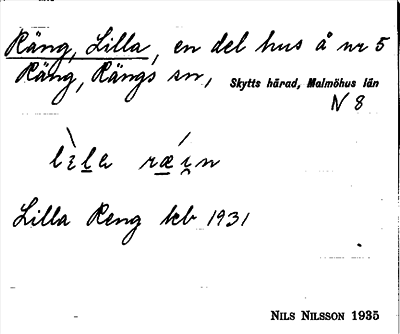 Räng, Lilla, en del hus å nr 5
Räng, Rängs sn, Skytts härad, Malmöhus län
N 8
Lilla Reng kb 1931
NILS NILSSON 1935